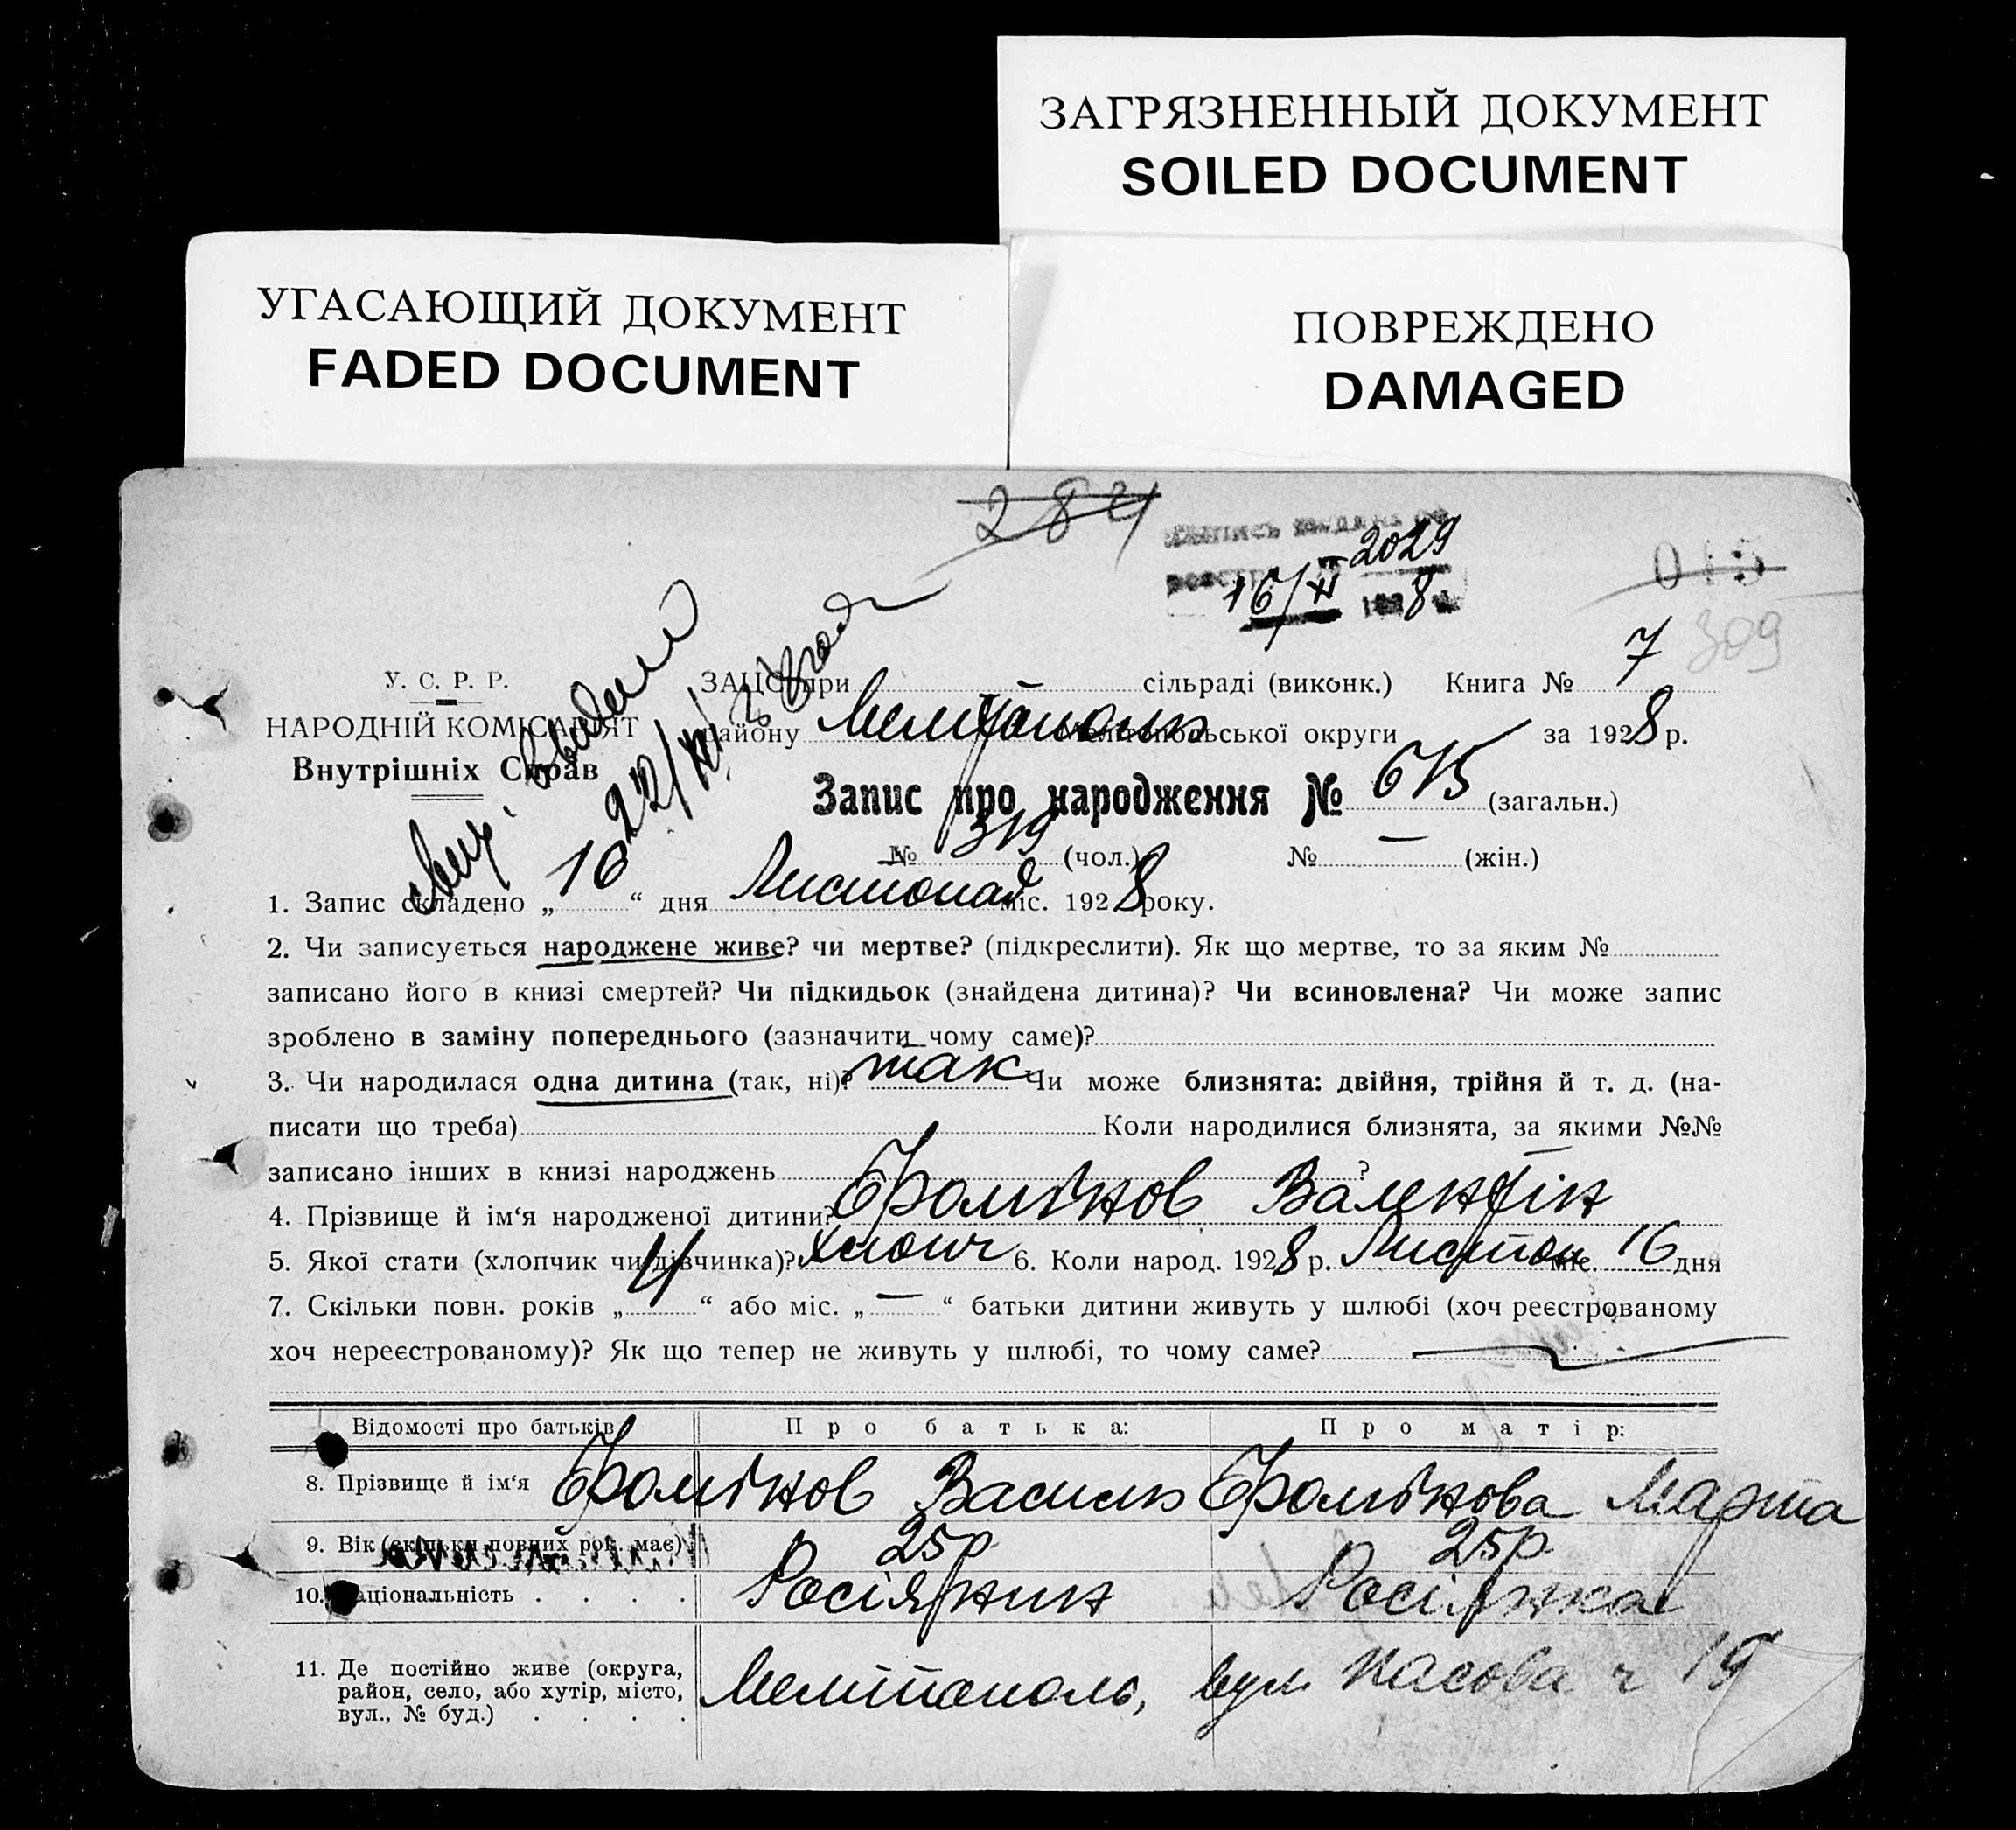 ЗАГРЯЗНЕННЫЙ ДОКУМЕНТ
SOILED DOCUMENT
УГАСАЮЩИЙ ДОКУМЕНТ
FADED DOCUMENT
ПОВРЕЖДЕНО
DAMAGED
284
2029
16/XI 8
015
309
У. С. Р. Р.
НАРОДНІЙ КОМІСАРІЯТ
Внутрішніх Справ
22/XI
ЗАЦС при сільраді (виконк.) Книга № 7
району Мелітополь Мелітопольської округи за 1928 р.
Запис про народження № 675 (загальн.)
№ 319 (чол.) № — (жін.)
1. Запис складено „16“ дня Листопад міс. 1928 року.
2. Чи записується народжене живе? чи мертве? (підкреслити). Як що мертве, то за яким №
записано його в книзі смертей? Чи підкидьок (знайдена дитина)? Чи всиновлена? Чи може запис
зроблено в заміну попереднього (зазначити чому саме)?
3. Чи народилася одна дитина (так, ні)? так Чи може близнята: двійня, трійня й т. д. (на-
писати що треба) Коли народилися близнята, за якими №№
записано інших в книзі народжень — ?
4. Прізвище й ім‘я народженої дитини? Фомінов Валентін
5. Якої стати (хлопчик чи дівчинка)? Хлопч 6. Коли народ. 1928 р. Листоп міс. 16 дня
7. Скільки повн. років „4“ або міс. „—“ батьки дитини живуть у шлюбі (хоч реєстрованому
хоч нереєстрованому)? Як що тепер не живуть у шлюбі, то чому саме? —
Відомості про батьків Про батька: Про матір:
8. Прізвище й ім‘я Фомінов Василь Фомінова Марта
9. Вік (скільки повних рок. має) 25р 25р
10. Національність . . . . Росіянин Росіянка
11. Де постійно живе (округа,
район, село, або хутір, місто,
вул., № буд.) . . . . Мелітополь, вул. Касова ч 19